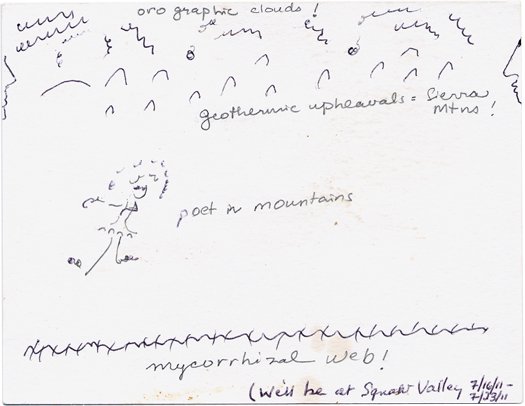 orographic clouds!
geothermic upheavals = Sierra
Mtns!
poet in mountains
mycorrhizal web!
(We'll be at Squaw Valley 7/16/11-
7/23/11